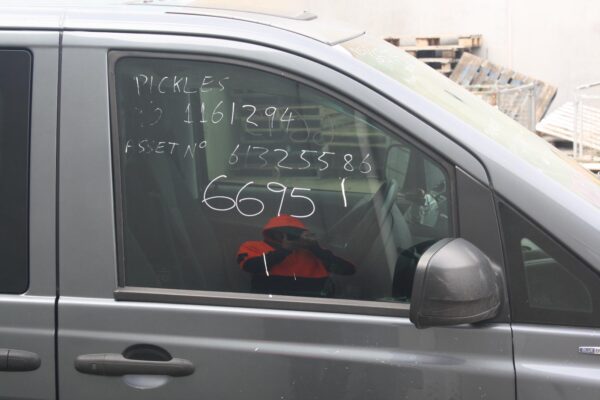 PICKLES
1161294
ASSET Nº 61325586
6695 1